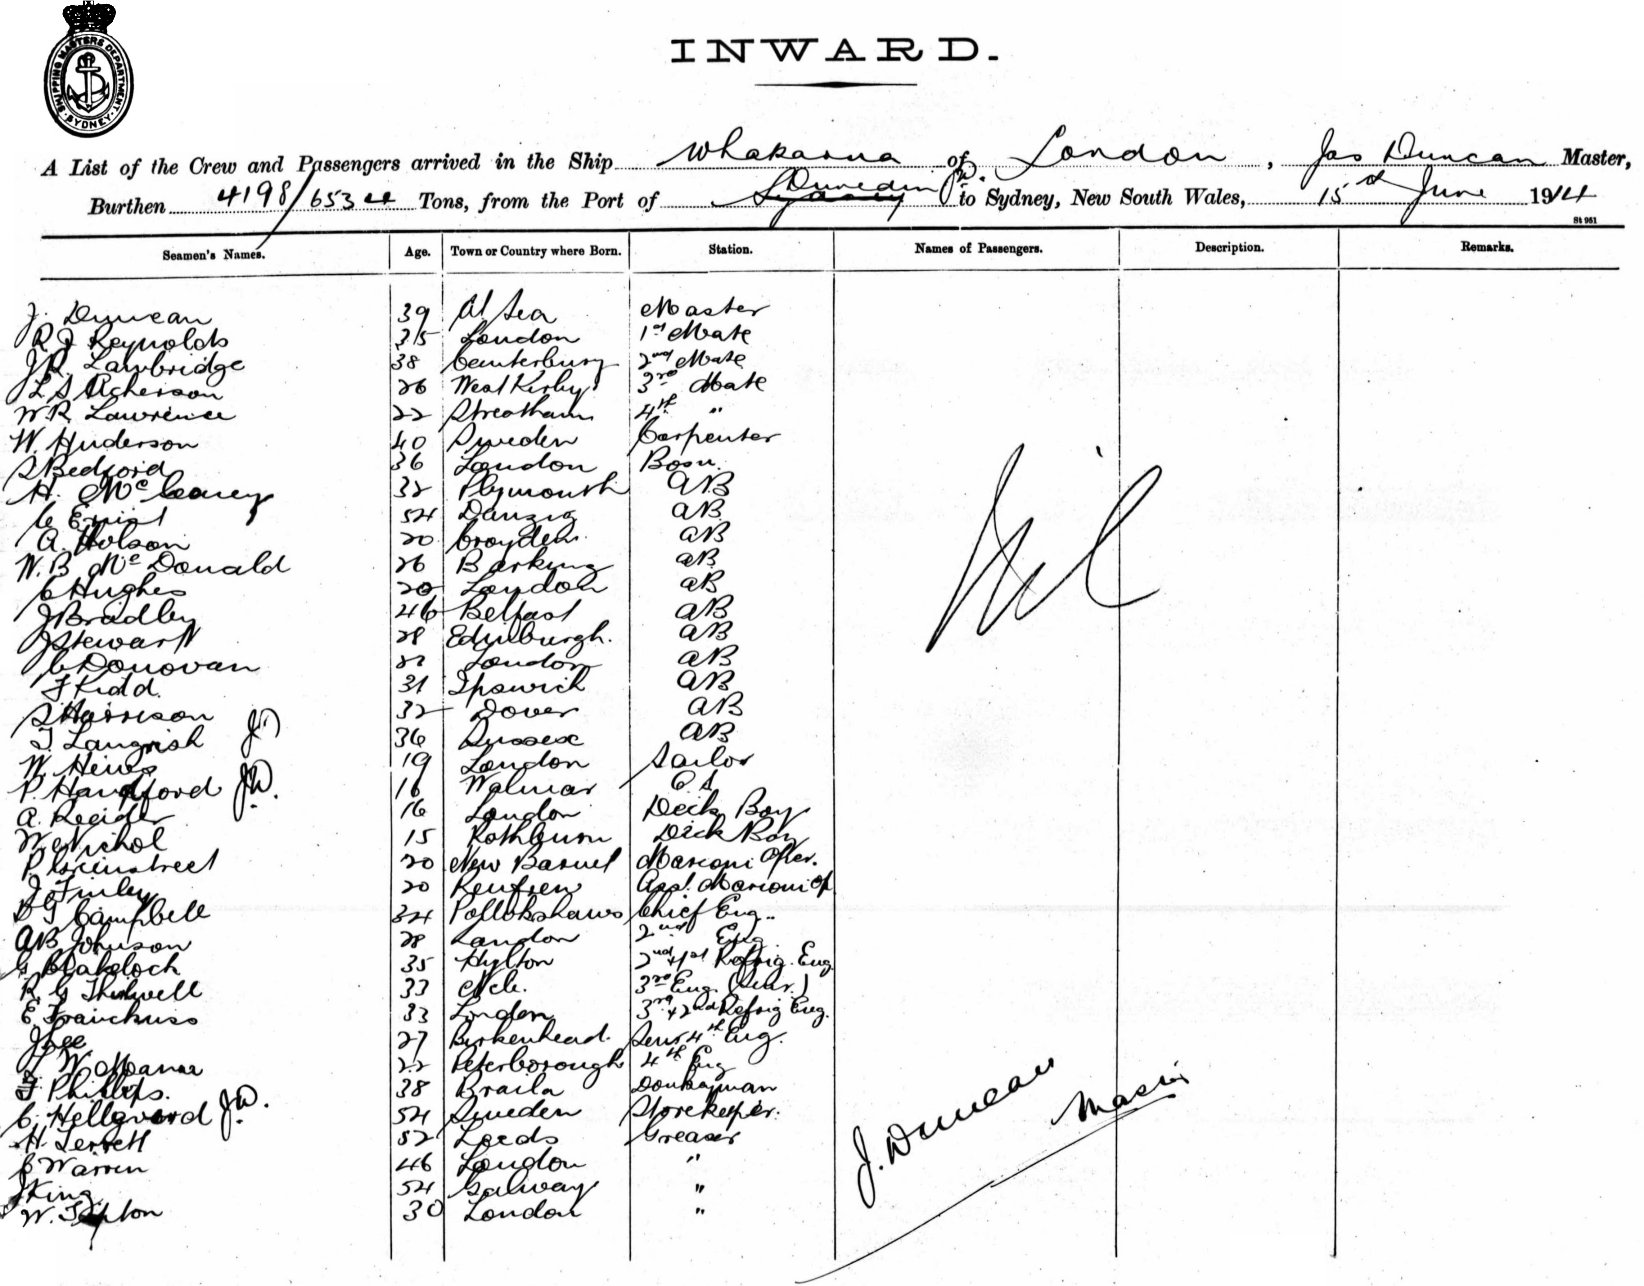 SHIPPING MASTERS DEPARTMENT
SYDNEY
INWARD.
A List of the Crew and Passengers arrived in the Ship Whakarua of London, Jas Duncan Master,
Burthen 4198/6534 Tons, from the Port of Dunedin J.D. to Sydney, New South Wales, 15th June 1914
St 961
Seamen's Names. Age. Town or Country where Born. Station. Names of Passengers. Description. Remarks.
J. Duncan 39 At Sea Master
R J Reynolds 35 London 1st Mate
J R. Lawbridge 38 Canterbury 2nd Mate
L S Acherson 26 West Kirby 3rd Mate
W R Lawrence 22 Streatham 4th "
W. Anderson 40 Sweden Carpenter
S Bedford 36 London Bosn.
H. Mc Cearey 32 Plymouth AB
C Ernst 54 Danzig AB
A. Holson 20 Croyden AB
W. B McDonald 26 Barking AB
C Hughes 20 London AB
J Bradley 46 Belfast AB
J Stewart 28 Edinburgh. AB
C Donovan 22 London AB
F Kidd. 31 Ipswich AB
S Harrison 32 Dover AB
T. Langrish J.D 36 Sussex AB
W. Hews 19 London Sailor
P. Handford J.D. 16 Walmar
A. Reeider 16 London Deck Boy
W. Nichol 15 Rothburn Deck Boy
P. Greenstreet 20 New Barnet Marconi Oper.
J Finley 20 Renfrew Asst. Marconi Op
D T Campbell 34 Pollokshaws Chief Eng.
A B Johnson 28 London 2nd Eng
G Blakeloch 35 Hylton 2nd & 1st Refrig. Eng
R G Thirlwell 33 N/c. 3rd Eng.
E Franckuss 33 London 3rd & 2nd Refrig Eng.
J Gee 27 Birkenhead. Senr 4th Eng.
L W Manna 22 Peterborough 4th Eng
F Phillips. 38 Braila Donkeyman
C. Hellgvord J.D. 54 Sweden Storekeeper.
H Terrett 52 Leeds Greaser
C Warren 46 London "
J King 54 Galway "
W. Tipton 30 London "
Nil
J. Duncan
Master